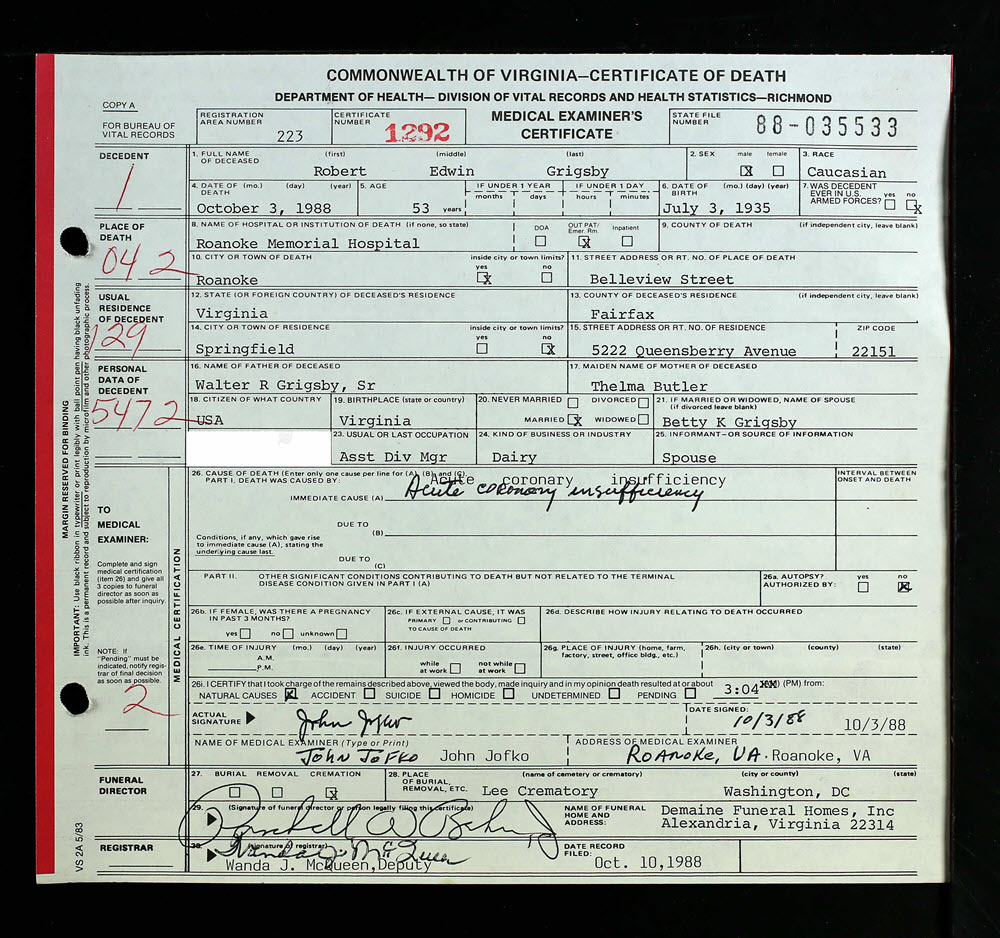 COMMONWEALTH OF VIRGINIA—CERTIFICATE OF DEATH
DEPARTMENT OF HEALTH— DIVISION OF VITAL RECORDS AND HEALTH STATISTICS—RICHMOND
COPY A
FOR BUREAU OF
VITAL RECORDS
REGISTRATION
AREA NUMBER 223
CERTIFICATE
NUMBER 1292
MEDICAL EXAMINER'S
CERTIFICATE
STATE FILE
NUMBER 88-035533
DECEDENT
1
1. FULL NAME (first) (middle) (last)
OF DECEASED
Robert Edwin Grigsby
2. SEX male female
X
3. RACE
Caucasian
4. DATE OF (mo.) (day) (year)
DEATH
October 3, 1988
5. AGE
53 years
IF UNDER 1 YEAR
months days
IF UNDER 1 DAY
hours minutes
6. DATE OF (mo.) (day) (year)
BIRTH
July 3, 1935
7. WAS DECEDENT
EVER IN U.S.
ARMED FORCES? yes no
X
PLACE OF
DEATH
042
8. NAME OF HOSPITAL OR INSTITUTION OF DEATH (if none, so state)
Roanoke Memorial Hospital
DOA
OUT PAT/
Emer. Rm.
Inpatient
X
9. COUNTY OF DEATH (if independent city, leave blank)
10. CITY OR TOWN OF DEATH inside city or town limits?
yes no
Roanoke X
11. STREET ADDRESS OR RT. NO. OF PLACE OF DEATH
Belleview Street
USUAL
RESIDENCE
OF DECEDENT
129
12. STATE (OR FOREIGN COUNTRY) OF DECEASED'S RESIDENCE
Virginia
13. COUNTY OF DECEASED'S RESIDENCE (if independent city, leave blank)
Fairfax
14. CITY OR TOWN OF RESIDENCE inside city or town limits?
yes no
Springfield X
15. STREET ADDRESS OR RT. NO. OF RESIDENCE
5222 Queensberry Avenue
ZIP CODE
22151
PERSONAL
DATA OF
DECEDENT
5472
16. NAME OF FATHER OF DECEASED
Walter R Grigsby, Sr
17. MAIDEN NAME OF MOTHER OF DECEASED
Thelma Butler
18. CITIZEN OF WHAT COUNTRY
USA
19. BIRTHPLACE (state or country)
Virginia
20. NEVER MARRIED DIVORCED
MARRIED X WIDOWED
21. IF MARRIED OR WIDOWED, NAME OF SPOUSE
(if divorced leave blank)
Betty K Grigsby
23. USUAL OR LAST OCCUPATION
Asst Div Mgr
24. KIND OF BUSINESS OR INDUSTRY
Dairy
25. INFORMANT—OR SOURCE OF INFORMATION
Spouse
MARGIN RESERVED FOR BINDING
IMPORTANT: Use black ribbon in typewriter or print legibly with ball point pen having black unfading
ink. This is a permanent record and subject to reproduction by microfilm and other photographic process.
TO
MEDICAL
EXAMINER:
Complete and sign
medical certification
(item 26) and give all
3 copies to funeral
director as soon as
possible after inquiry.
NOTE: If
"Pending" must be
indicated, notify regis-
trar of final decision
as soon as possible.
2
MEDICAL CERTIFICATION
26. CAUSE OF DEATH (Enter only one cause per line for (A), (B) and (C).
PART I. DEATH WAS CAUSED BY:
Acute coronary insufficiency
IMMEDIATE CAUSE (A) Acute coronary insufficiency
INTERVAL BETWEEN
ONSET AND DEATH
DUE TO
(B)
Conditions, if any, which gave rise
to immediate cause (A), stating the
underlying cause last.
DUE TO
(C)
PART II. OTHER SIGNIFICANT CONDITIONS CONTRIBUTING TO DEATH BUT NOT RELATED TO THE TERMINAL
DISEASE CONDITION GIVEN IN PART I (A)
26a. AUTOPSY? yes no
AUTHORIZED BY: X
26b. IF FEMALE, WAS THERE A PREGNANCY
IN PAST 3 MONTHS?
yes no unknown
26c. IF EXTERNAL CAUSE, IT WAS
PRIMARY or CONTRIBUTING
TO CAUSE OF DEATH
26d. DESCRIBE HOW INJURY RELATING TO DEATH OCCURRED
26e. TIME OF INJURY (mo.) (day) (year)
A.M.
P.M.
26f. INJURY OCCURRED
while not while
at work at work
26g. PLACE OF INJURY (home, farm,
factory, street, office bldg., etc.)
26h. (city or town) (county) (state)
26i. I CERTIFY that I took charge of the remains described above, viewed the body, made inquiry and in my opinion death resulted at or about 3:04 (PM) from:
NATURAL CAUSES X ACCIDENT SUICIDE HOMICIDE UNDETERMINED PENDING
ACTUAL
SIGNATURE John Jofko
DATE SIGNED:
10/3/88 10/3/88
NAME OF MEDICAL EXAMINER (Type or Print)
JOHN JOFKO John Jofko
ADDRESS OF MEDICAL EXAMINER
ROANOKE, VA. Roanoke, VA
FUNERAL
DIRECTOR
27. BURIAL REMOVAL CREMATION
X
28. PLACE
OF BURIAL,
REMOVAL, ETC.
(name of cemetery or crematory) (city or county) (state)
Lee Crematory Washington, DC
29. (Signature of funeral director or person legally filing this certificate)
NAME OF FUNERAL
HOME AND
ADDRESS:
Demaine Funeral Homes, Inc
Alexandria, Virginia 22314
REGISTRAR
30. (signature of registrar)
Wanda J. McQueen
Wanda J. McQueen, Deputy
DATE RECORD
FILED:
Oct. 10,1988
VS 2A 5/83